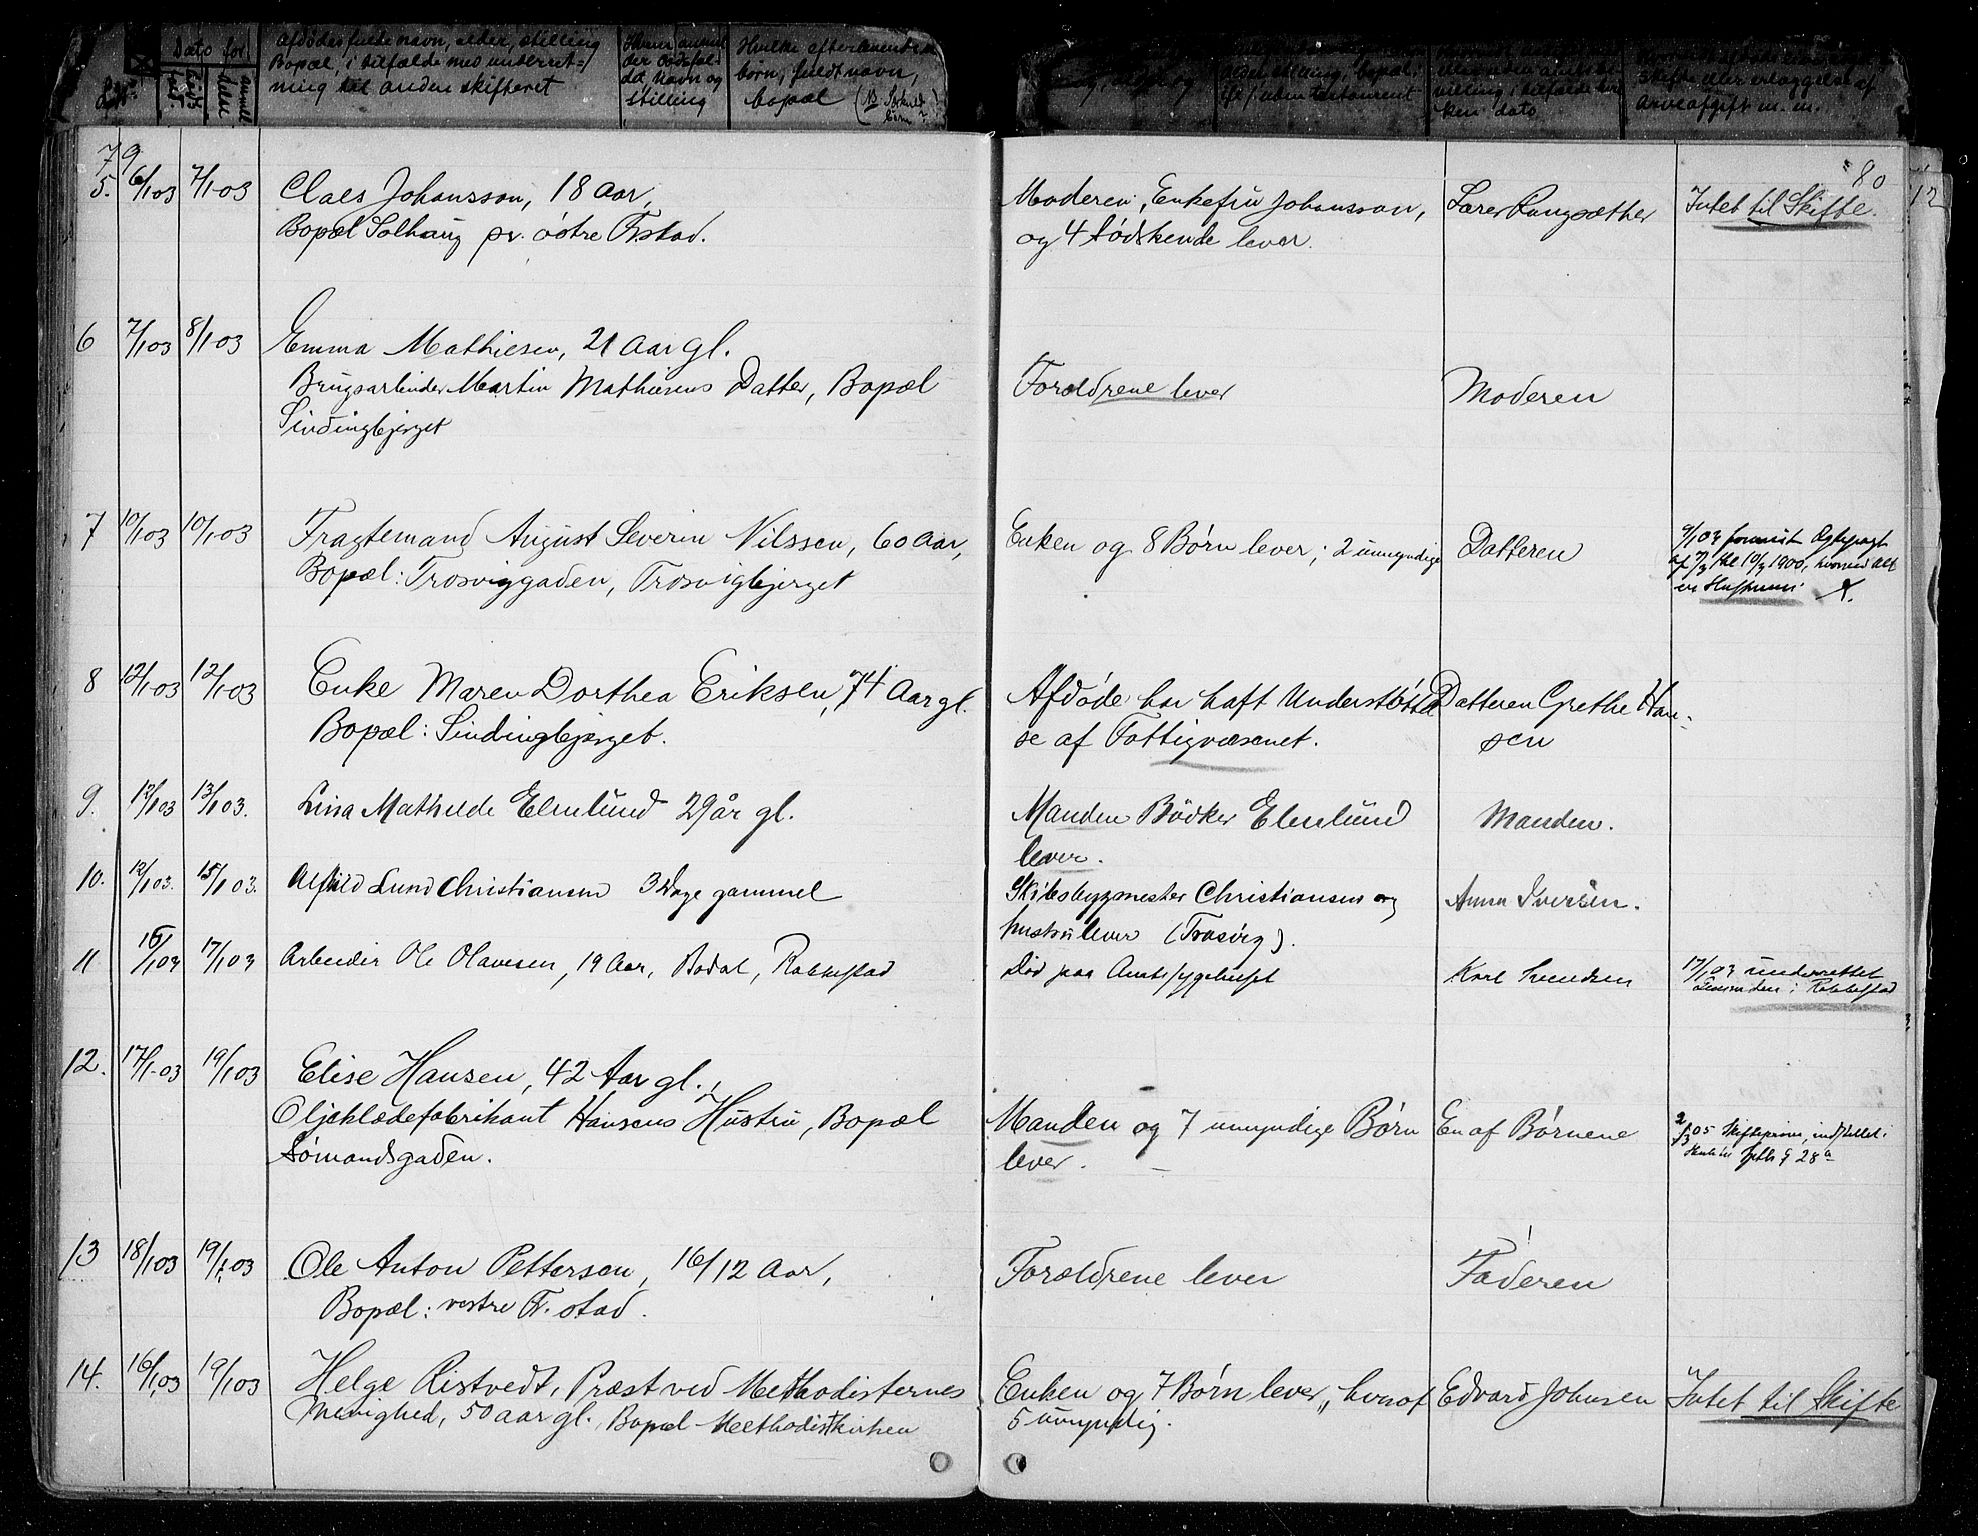 Dato for
Afdødes fulde navn, alder, stilling
Bopæl, i tilfælde med underret-
ning til anden skifteret
det navn og
stilling
Hvilke efterlevende
børn, fuldt navn,
bopæl
skifte eller erlæggelse af
arveafgift m. m.
79
80
12
5. 6/1 03 7/1-03 Claes Johansson, 18 Aar,
Bopæl Solhaug pr. östre Frstad.
Moderen, Enkefru Johansson,
og 4 Södskende lever.
Lærer Rangsæther
Intet til Skifte.
6 7/1 03 8/1-03 Emma Mathiesen, 21 Aar gl.
Brugsarbeider Martin Mathiesens Datter, Bopæl
Sindingbjerget
Forældrene lever
Moderen
7 10/1 03 10/1-03 Fragtemand August Severin Nilssen, 60 Aar,
Bopæl: Trosviggaden, Trosvigbjerget
Enken og 8 Børn lever; 2 umyndige
Datteren
8 12/1-03 12/1-03 Enke Maren Dorthea Eriksen, 74 Aar gl.
Bopæl: Sindingbjerget.
Afdøde har haft Understøttel
se af Fattigvæsenet.
Datteren Grethe Han-
sen
9. 12/1 03 13/1 03. Lina Mathilde Elmlund 29 år gl.
Manden Bödker Elmlund
lever.
Manden.
10. 12/1 03. 15/1 03. Alfhild Lund Christiansen 3 Dage gammel
Skibsbygmester Christiansen og
hustru lever (Trosvig).
Anna Iversen.
11 15/1 03 17/1 03 Arbeider Ole Olavesen, 19 Aar, Bodal, Rakkestad
Død paa Amtssygehuset
Karl Svendsen
17/1 03 underrettet
Lensmanden i Rakkestad
12. 17/1-03 19/1 03 Elise Hansen, 42 Aar gl.,
Oljeklædefabrikant Hansens Hustru, Bopæl
Sømandsgaden.
Manden og 7 umyndige Børn
lever.
En af Børnene
13 18/1 03 19/1 03 Ole Anton Pettersen, 16/12 Aar,
Bopæl: vestre Fr. stad.
Forældrene lever
Faderen
14. 16/1 03 19/1 03 Helge Ristvedt, Præst ved Methodisternes
Menighed, 50 aar gl. Bopæl Methodistkirken
Enken og 7 Børn lever, hvoraf
5 umyndig.
Edvard Johnsen
Intet til Skifte